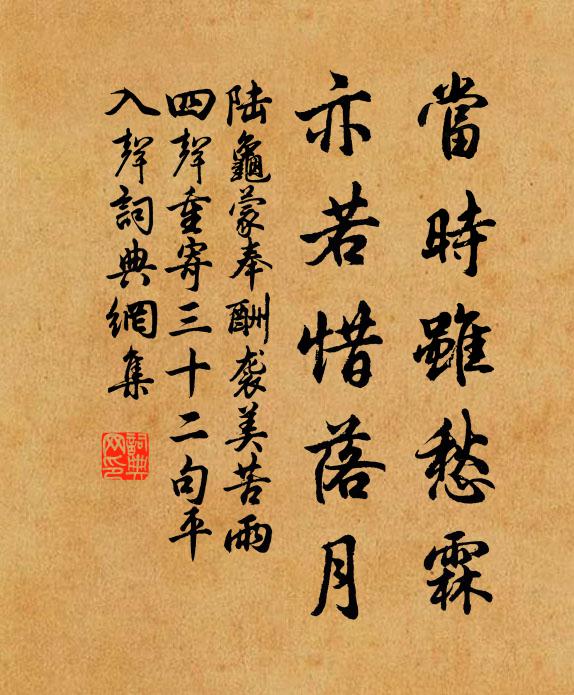 當時雖愁霖
亦若惜落月
陆龜蒙奉酬袭美苦雨
四聲重寄三十二句平
入聲詞典網集
詞典网印